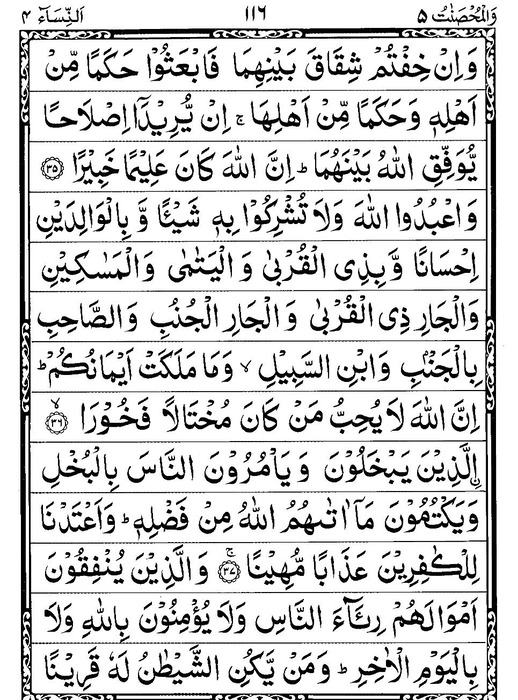 وَالْمُحْصَنٰتُ ۵ ۱۱٦ اَلنِّسَآء ۴
وَاِنْ خِفْتُمْ شِقَاقَ بَيْنِهِمَا فَابْعَثُوْا حَكَمًا مِّنْ
اَهْلِهٖ وَحَكَمًا مِّنْ اَهْلِهَا ۚ اِنْ يُّرِيْدَاۤ اِصْلَاحًا
يُّوَفِّقِ اللّٰهُ بَيْنَهُمَا ؕ اِنَّ اللّٰهَ كَانَ عَلِيْمًا خَبِيْرًا ﴿۳۵﴾
وَاعْبُدُوا اللّٰهَ وَلَا تُشْرِكُوْا بِهٖ شَيْئًا وَّ بِالْوَالِدَيْنِ
اِحْسَانًا وَّبِذِى الْقُرْبٰى وَالْيَتٰمٰى وَالْمَسٰكِيْنِ
وَالْجَارِ ذِى الْقُرْبٰى وَالْجَارِ الْجُنُبِ وَالصَّاحِبِ
بِالْجَنْۢبِ وَابْنِ السَّبِيْلِ ۙ وَمَا مَلَكَتْ اَيْمَانُكُمْ ؕ
اِنَّ اللّٰهَ لَا يُحِبُّ مَنْ كَانَ مُخْتَالًا فَخُوْرَا ۙ﴿۳٦﴾
اۨلَّذِيْنَ يَبْخَلُوْنَ وَيَاْمُرُوْنَ النَّاسَ بِالْبُخْلِ
وَيَكْتُمُوْنَ مَاۤ اٰتٰىهُمُ اللّٰهُ مِنْ فَضْلِهٖ ؕ وَاَعْتَدْنَا
لِلْكٰفِرِيْنَ عَذَابًا مُّهِيْنًا ۚ﴿۳۷﴾ وَالَّذِيْنَ يُنْفِقُوْنَ
اَمْوَالَهُمْ رِئَآءَ النَّاسِ وَلَا يُؤْمِنُوْنَ بِاللّٰهِ وَلَا
بِالْيَوْمِ الْاٰخِرِ ؕ وَمَنْ يَّكُنِ الشَّيْطٰنُ لَهٗ قَرِيْنًا